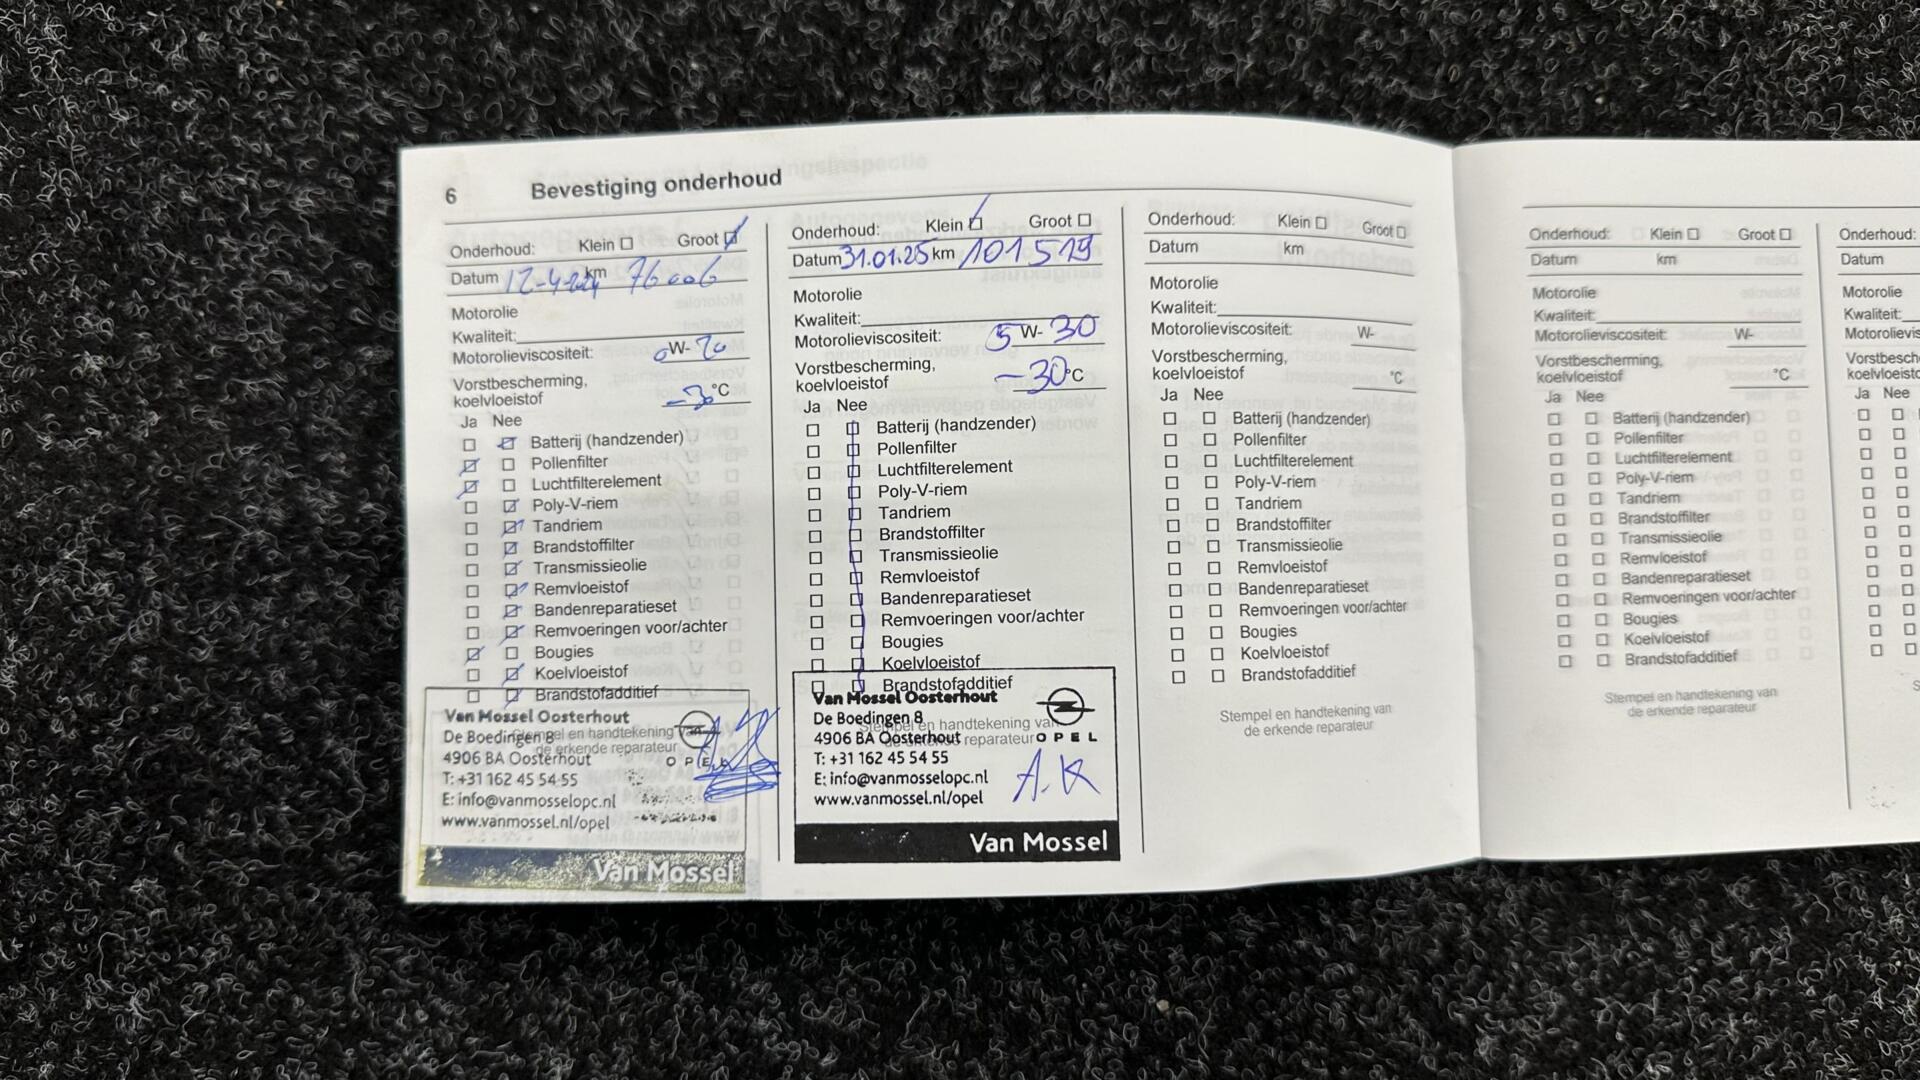 6 Bevestiging onderhoud
Onderhoud: Klein Groot
Datum 12-4-2024 km 76006
Motorolie
Kwaliteit:
Motorolieviscositeit: 0W-20
Vorstbescherming,
koelvloeistof -30°C
Ja Nee
Batterij (handzender)
Pollenfilter
Luchtfilterelement
Poly-V-riem
Tandriem
Brandstoffilter
Transmissieolie
Remvloeistof
Bandenreparatieset
Remvoeringen voor/achter
Bougies
Koelvloeistof
Brandstofadditief
Stempel en handtekening van
de erkende reparateur
Van Mossel Oosterhout
De Boedingen 8
4906 BA Oosterhout
T: +31 162 45 54 55
E: info@vanmosselopc.nl
www.vanmossel.nl/opel
OPEL
Van Mossel
Onderhoud: Klein Groot
Datum 31.01.25 km 101519
Motorolie
Kwaliteit:
Motorolieviscositeit: 5W-30
Vorstbescherming,
koelvloeistof -30°C
Ja Nee
Batterij (handzender)
Pollenfilter
Luchtfilterelement
Poly-V-riem
Tandriem
Brandstoffilter
Transmissieolie
Remvloeistof
Bandenreparatieset
Remvoeringen voor/achter
Bougies
Koelvloeistof
Brandstofadditief
Stempel en handtekening van
de erkende reparateur
Van Mossel Oosterhout
De Boedingen 8
4906 BA Oosterhout
T: +31 162 45 54 55
E: info@vanmosselopc.nl
www.vanmossel.nl/opel
OPEL
A.K
Van Mossel
Onderhoud: Klein Groot
Datum km
Motorolie
Kwaliteit:
Motorolieviscositeit: W-
Vorstbescherming,
koelvloeistof °C
Ja Nee
Batterij (handzender)
Pollenfilter
Luchtfilterelement
Poly-V-riem
Tandriem
Brandstoffilter
Transmissieolie
Remvloeistof
Bandenreparatieset
Remvoeringen voor/achter
Bougies
Koelvloeistof
Brandstofadditief
Stempel en handtekening van
de erkende reparateur
Onderhoud: Klein Groot
Datum km
Motorolie
Kwaliteit:
Motorolieviscositeit: W-
Vorstbescherming,
koelvloeistof °C
Ja Nee
Batterij (handzender)
Pollenfilter
Luchtfilterelement
Poly-V-riem
Tandriem
Brandstoffilter
Transmissieolie
Remvloeistof
Bandenreparatieset
Remvoeringen voor/achter
Bougies
Koelvloeistof
Brandstofadditief
Stempel en handtekening van
de erkende reparateur
Onderhoud:
Datum
Motorolie
Kwaliteit:
Ja Nee